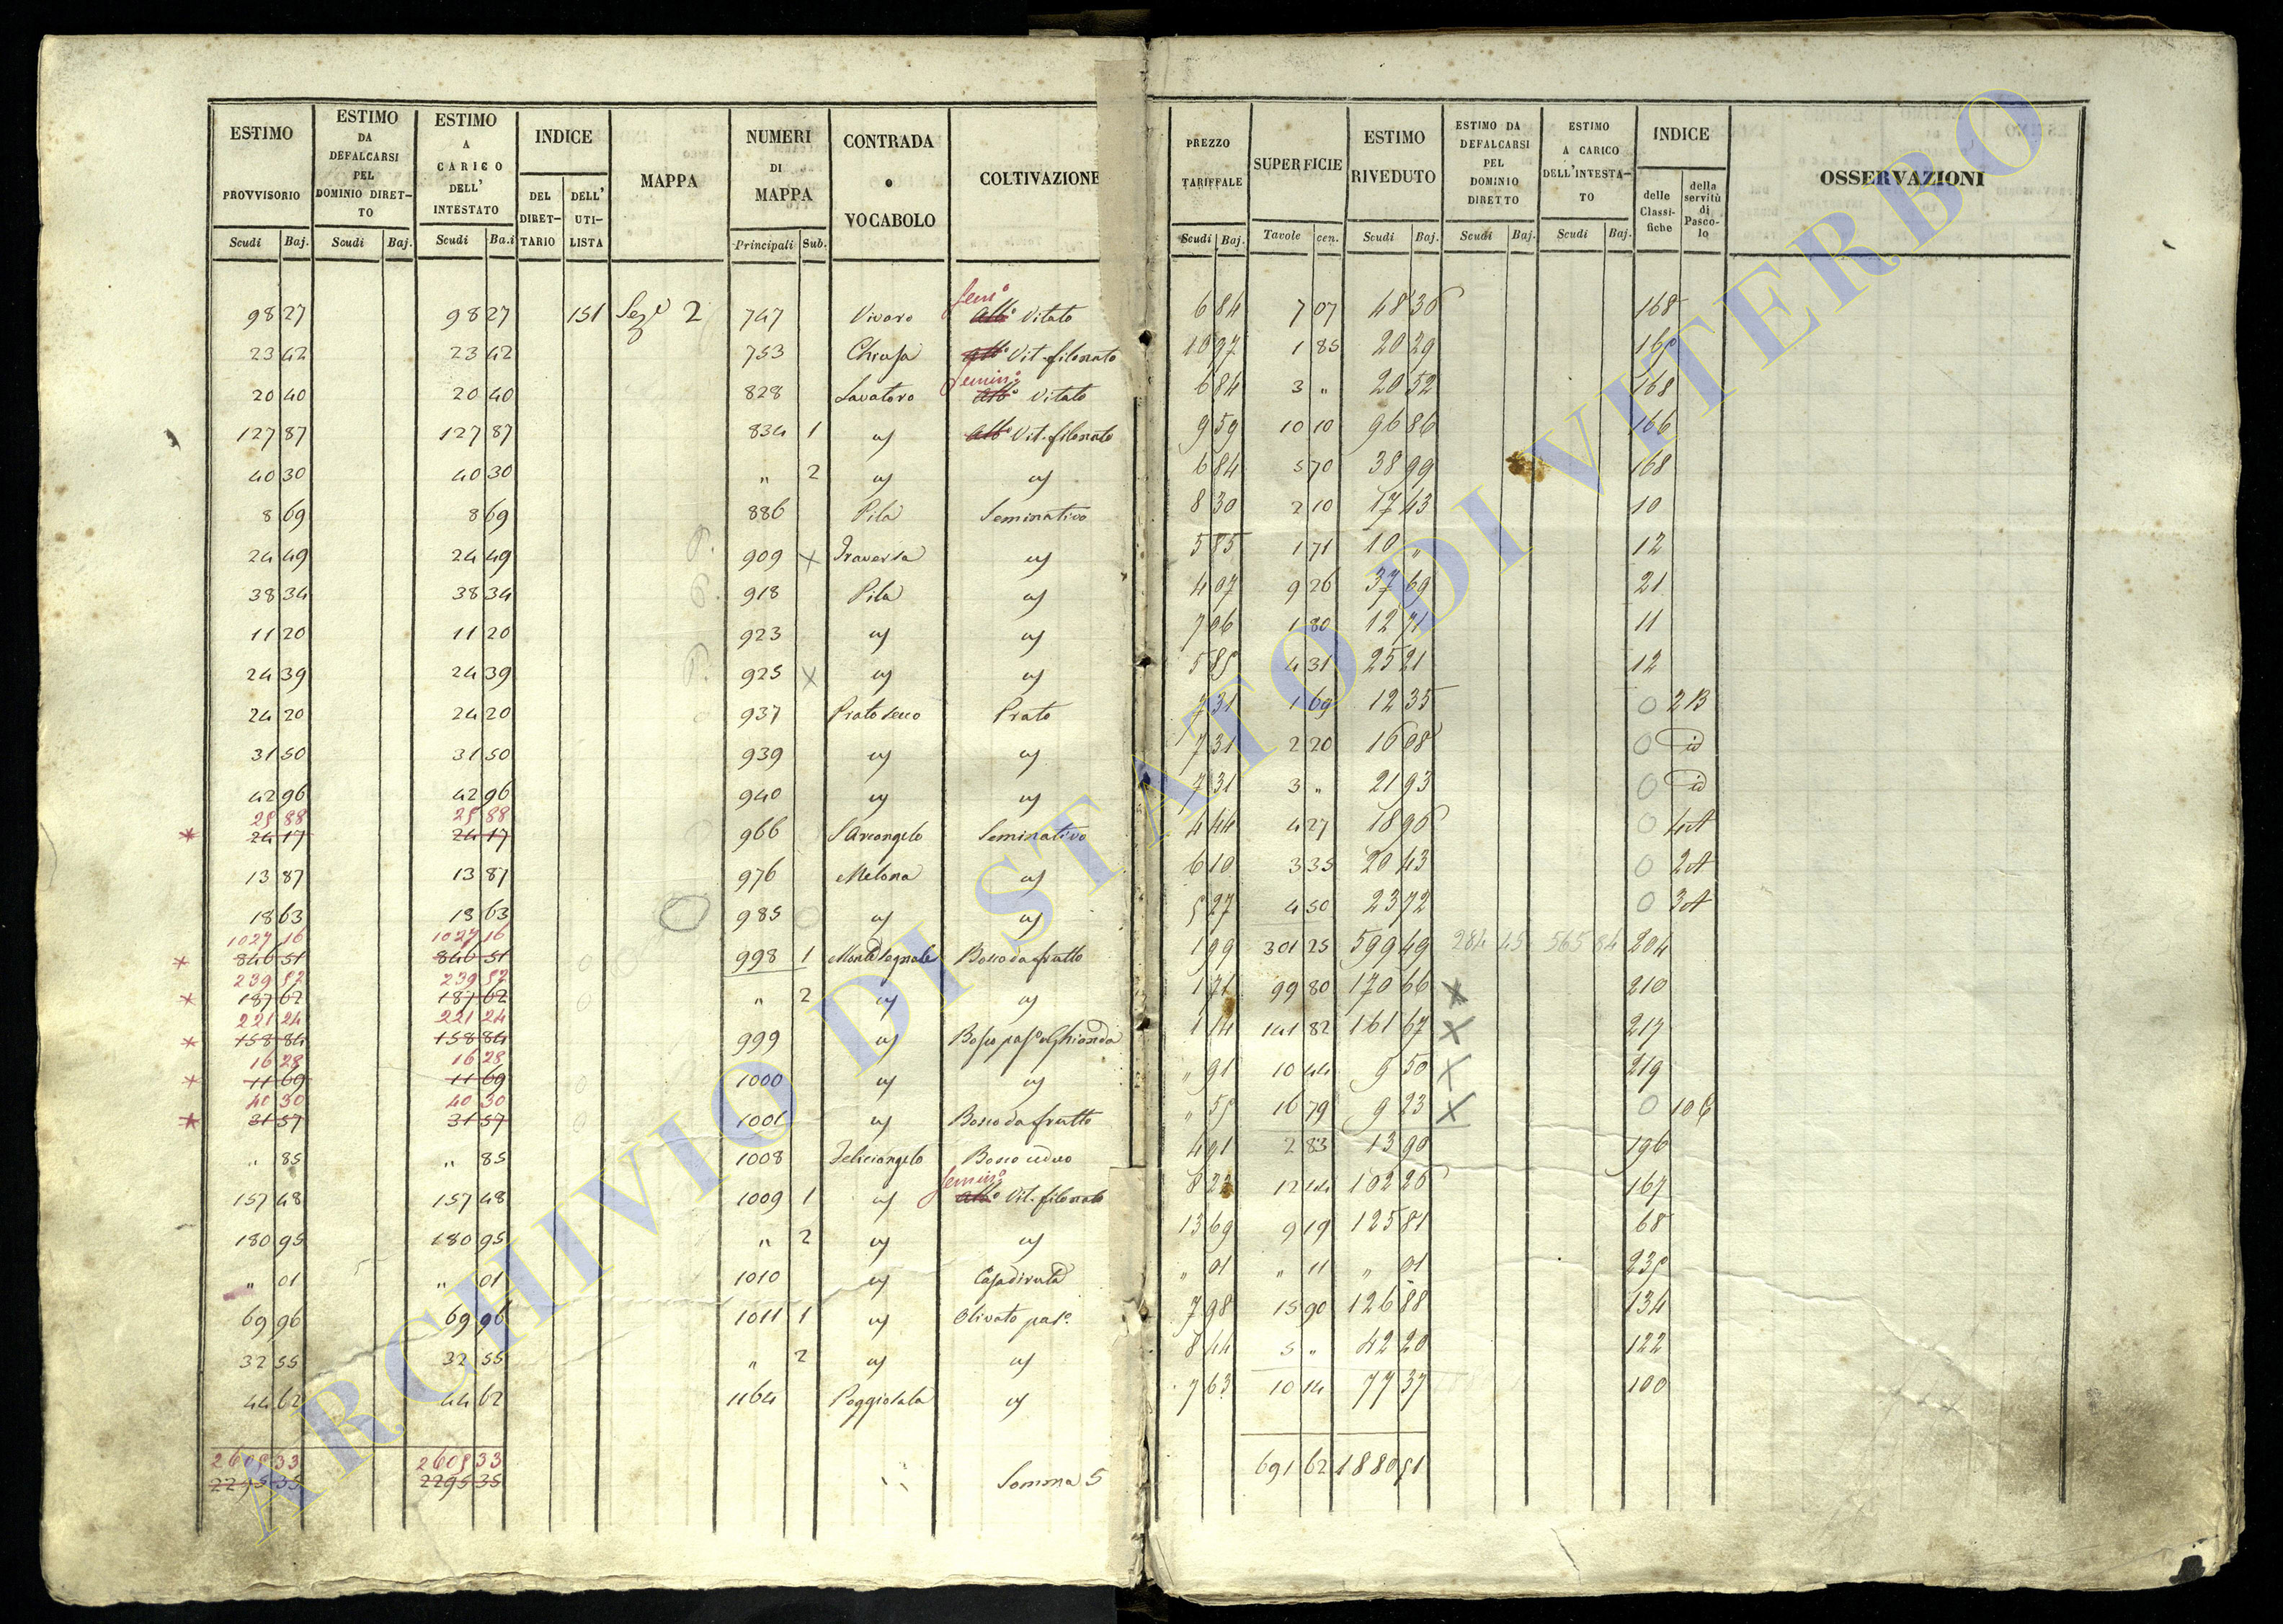 ESTIMO PROVVISORIO Scudi Baj. | ESTIMO DA DEFALCARSI PEL DOMINIO DIRETTO Scudi Baj. | ESTIMO A CARICO DELL' INTESTATO Scudi Ba.i | INDICE DEL DIRETTARIO DELL' UTILISTA | MAPPA | NUMERI DI MAPPA Principali Sub. | CONTRADA o VOCABOLO | COLTIVAZIONE | PREZZO TARIFFALE Scudi Baj. | SUPERFICIE Tavole cen. | ESTIMO RIVEDUTO Scudi Baj. | ESTIMO DA DEFALCARSI PEL DOMINIO DIRETTO Scudi Baj. | ESTIMO A CARICO DELL'INTESTATO Scudi Baj. | INDICE delle Classifiche della servitù di Pascolo | OSSERVAZIONI
98 27 | 98 27 | 151 | Sez.e 2 | 747 | Vivaro | Sem.o Alb.o Vitato | 6 84 | 7 07 | 48 36 | 168
23 42 | 23 42 | 753 | Chiusa | Alb.o Vit. filonato | 10 97 | 1 85 | 20 29 | 165
20 40 | 20 40 | 828 | Lavatoro | Semin.o Alb.o Vitato | 6 84 | 3 " | 20 52 | 168
127 87 | 127 87 | 834 1 | id | Alb.o Vit. filonato | 9 59 | 10 10 | 96 86 | 166
40 30 | 40 30 | " 2 | id | id | 6 84 | 5 70 | 38 99 | 168
8 69 | 8 69 | 886 | Pila | Seminativo | 8 30 | 2 10 | 17 43 | 10
24 49 | 24 49 | 909 X | Traversa | id | 5 85 | 1 71 | 10 " | 12
38 34 | 38 34 | 918 | Pila | id | 4 07 | 9 26 | 37 69 | 21
11 20 | 11 20 | 923 | id | id | 7 06 | 1 80 | 12 71 | 11
24 39 | 24 39 | 925 X | id | id | 5 85 | 4 31 | 25 21 | 12
24 20 | 24 20 | 937 | Prato secco | Prato | 7 31 | 1 69 | 12 35 | 0 2B
31 50 | 31 50 | 939 | id | id | 7 31 | 2 20 | 16 08 | 0 id
42 96 | 42 96 | 940 | id | id | 7 31 | 3 " | 21 93 | 0 id
25 88 | 25 88
* 24 17 | 24 17 | 966 | S Arcangelo | Seminativo | 4 44 | 4 27 | 18 96 | 0 4A
13 87 | 13 87 | 976 | Melona | id | 6 10 | 3 35 | 20 43 | 0 2A
18 63 | 18 63 | 985 | id | id | 5 27 | 4 50 | 23 72 | 0 3A
1027 16 | 1027 16
* 846 51 | 846 51 | 998 1 | Bosco da frutto | 1 99 | 301 25 | 599 49 | 284 45 | 565 84 | 204
239 57 | 239 57
* 187 62 | 187 62 | " 2 | id | id | 1 71 | 99 80 | 170 66 | X | 210
221 24 | 221 24
* 158 84 | 158 84 | 999 | id | Bosco pas.o Ghianda | 1 14 | 141 82 | 161 67 | X | 217
16 28 | 16 28
* 11 69 | 11 69 | 1000 | id | id | " 91 | 10 44 | 9 50 | X | 219
40 30 | 40 30
* 31 57 | 31 57 | 1001 | id | Bosco da frutto | " 55 | 16 79 | 9 23 | X | 0 10 C
" 85 | " 85 | 1008 | Feliciangelo | Bosco ceduo | 4 91 | 2 83 | 13 90 | 196
157 48 | 157 48 | 1009 1 | id | Semin.o Alb.o Vit. filonato | 8 22 | 12 44 | 102 26 | 167
180 95 | 180 95 | " 2 | id | id | 13 69 | 9 19 | 125 81 | 68
" 01 | " 01 | 1010 | id | Casa diruta | " 01 | " 11 | " 01 | 235
69 96 | 69 96 | 1011 1 | id | Olivato pas.o | 7 98 | 15 90 | 126 88 | 134
32 55 | 32 55 | " 2 | id | id | 8 44 | 5 " | 42 20 | 122
44 62 | 44 62 | 1164 | Poggiosala | id | 7 63 | 10 14 | 77 37 | 100
2608 33 | 2608 33
2295 35 | 2295 35 | Somma 5 | 691 62 | 1880 51
ARCHIVIO DI STATO DI VITERBO